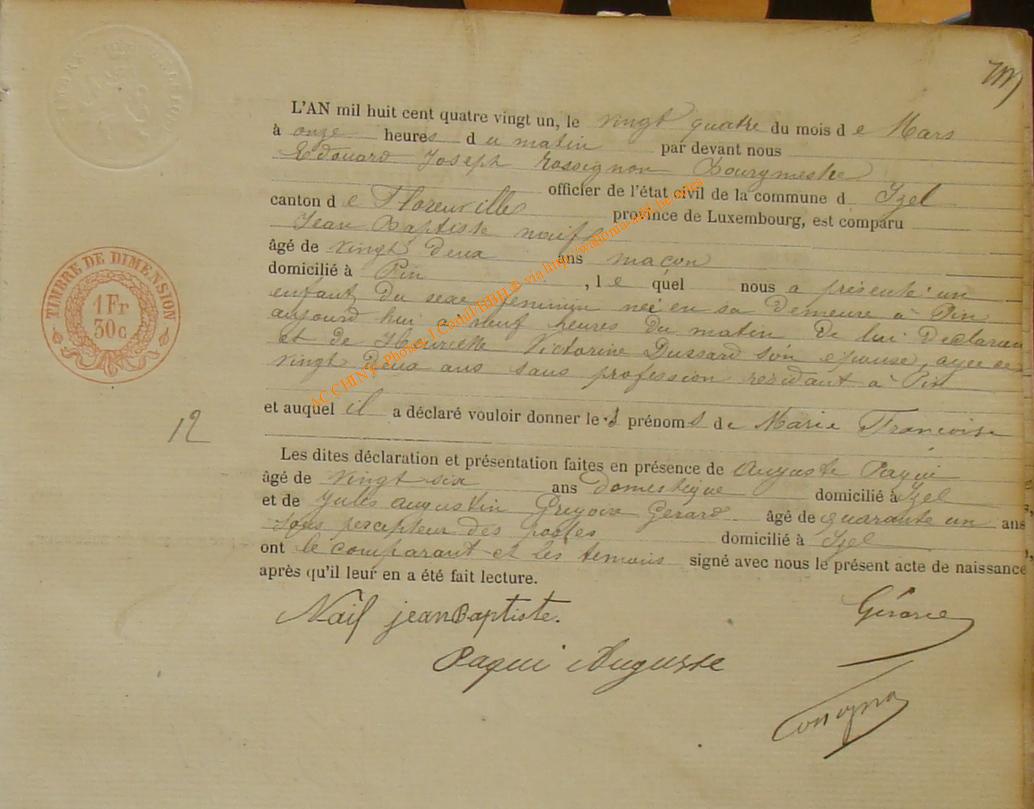 L'AN mil huit cent quatre vingt un, le vingt quatre du mois de Mars
à onze heures du matin par devant nous
Edouard Joseph Rossignon Bourgmestre
officier de l'état civil de la commune d Izel
canton de Florenville province de Luxembourg, est comparu
Jean Baptiste naif
âgé de vingt deux ans maçon
domicilié à Pin, le quel nous a présenté un
enfant du sexe féminin né en sa demeure à Pin
aujourd hui a neuf heures du matin de lui declarant
et de Henriette Victorine Dussard son épouse, agee de
vingt deux ans sans profession residant à Pin
et auquel il a déclaré vouloir donner les prénoms de Marie Françoise
12
Les dites déclaration et présentation faites en présence de Auguste Paqui
âgé de vingt six ans domestique domicilié à Izel
et de Jules Augustin Gregoire Gerard âgé de quarante un ans
sous percepteur des postes domicilié à Izel
ont le comparant et les temoins signé avec nous le présent acte de naissance
après qu'il leur en a été fait lecture.
Naif jean Baptiste. Gérard
Paqui Auguste
TIMBRE DE DIMENSION
1 Fr
30c